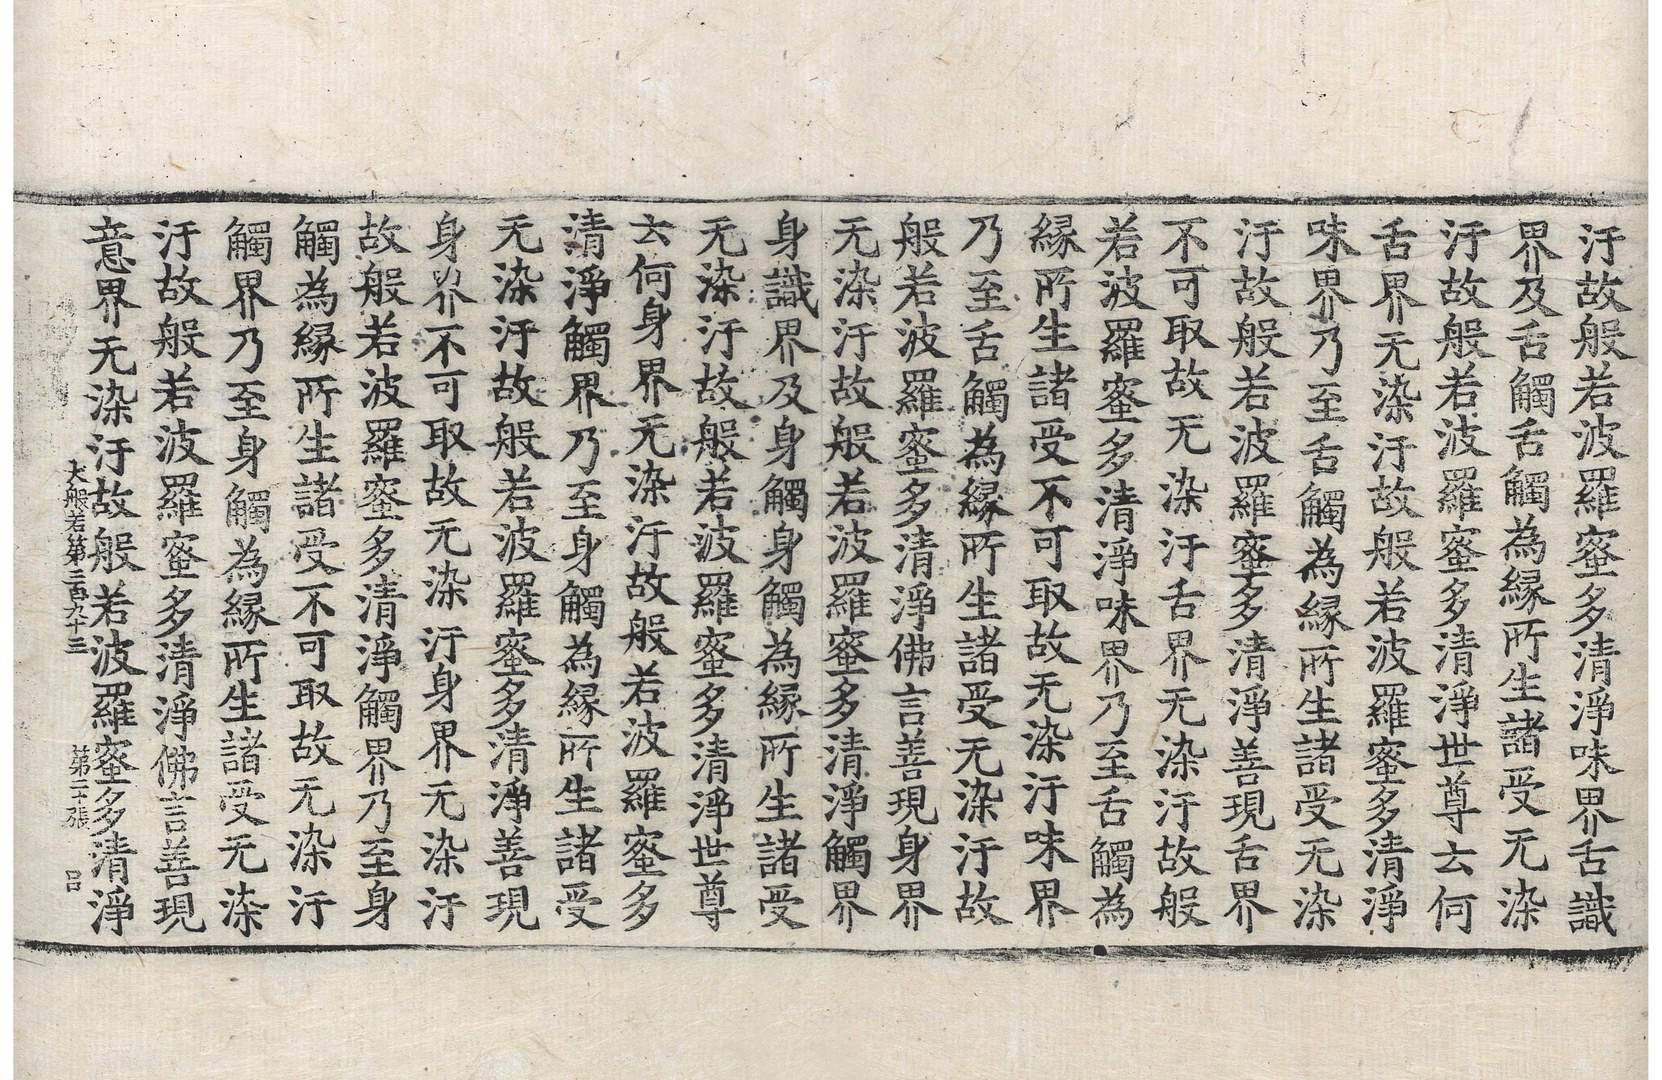 汙故般若波羅蜜多清淨味界舌識
界及舌觸舌觸為縁所生諸受无染
汙故般若波羅蜜多清淨世尊云何
舌界无染汙故般若波羅蜜多清淨
味界乃至舌觸為縁所生諸受无染
汙故般若波羅蜜多清淨善現舌界
不可取故无染汙舌界无染汙故般
若波羅蜜多清淨味界乃至舌觸為
縁所生諸受不可取故无染汙味界
乃至舌觸為縁所生諸受无染汙故
般若波羅蜜多清淨佛言善現身界
无染汙故般若波羅蜜多清淨觸界
身識界及身觸身觸為縁所生諸受
无染汙故般若波羅蜜多清淨世尊
云何身界无染汙故般若波羅蜜多
清淨觸界乃至身觸為縁所生諸受
无染汙故般若波羅蜜多清淨善現
身界不可取故无染汙身界无染汙
故般若波羅蜜多清淨觸界乃至身
觸為縁所生諸受不可取故无染汙
觸界乃至身觸為縁所生諸受无染
汙故般若波羅蜜多清淨佛言善現
意界无染汙故般若波羅蜜多清淨
大般若第二百九十三 第二十張 呂